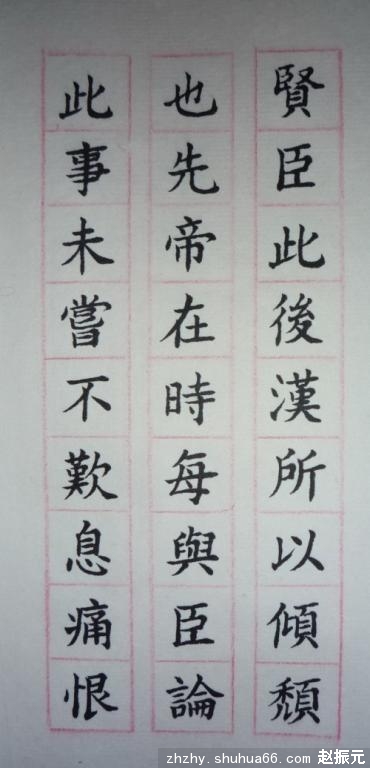 賢臣此後漢所以傾頹
也先帝在時每與臣論
此事未嘗不歎息痛恨
zhzhy.shuhua66.com 赵振元